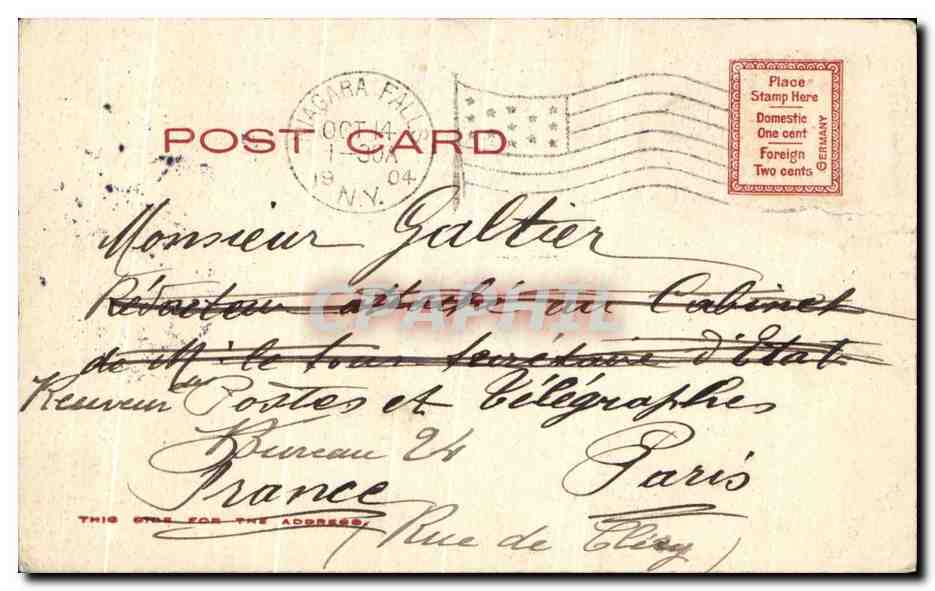 NIAGARA FALLS
OCT 14
1-30A
19 04
N.Y.
POST CARD
Place
Stamp Here
Domestic
One cent
Foreign
Two cents
GERMANY
Monsieur Galtier
Rédacteur attaché au Cabinet
de M. le sous secrétaire d'Etat
des
Receveur Postes et Télégraphes
Bureau 24 Paris
France
THIS SIDE FOR THE ADDRESS.
(Rue de Cléry)
CPAPHIL